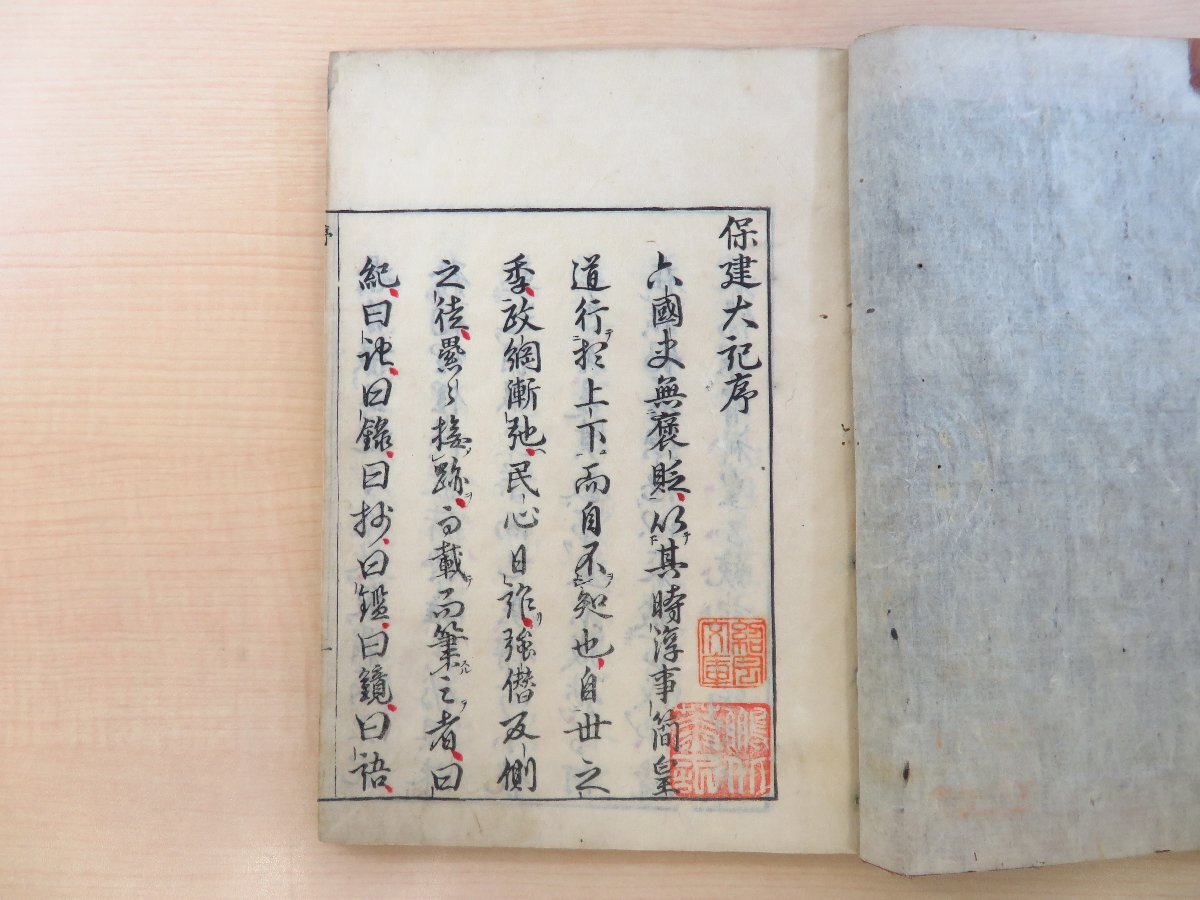 保建大記序
六國史無褒貶以其時淳事簡皇
道行於上下而自不知也自世之
季政綱漸弛民心日詐強僭反側
之徒疊〻接跡而載而筆之者曰
紀曰記曰錄曰抄曰鑑曰鏡曰語
序